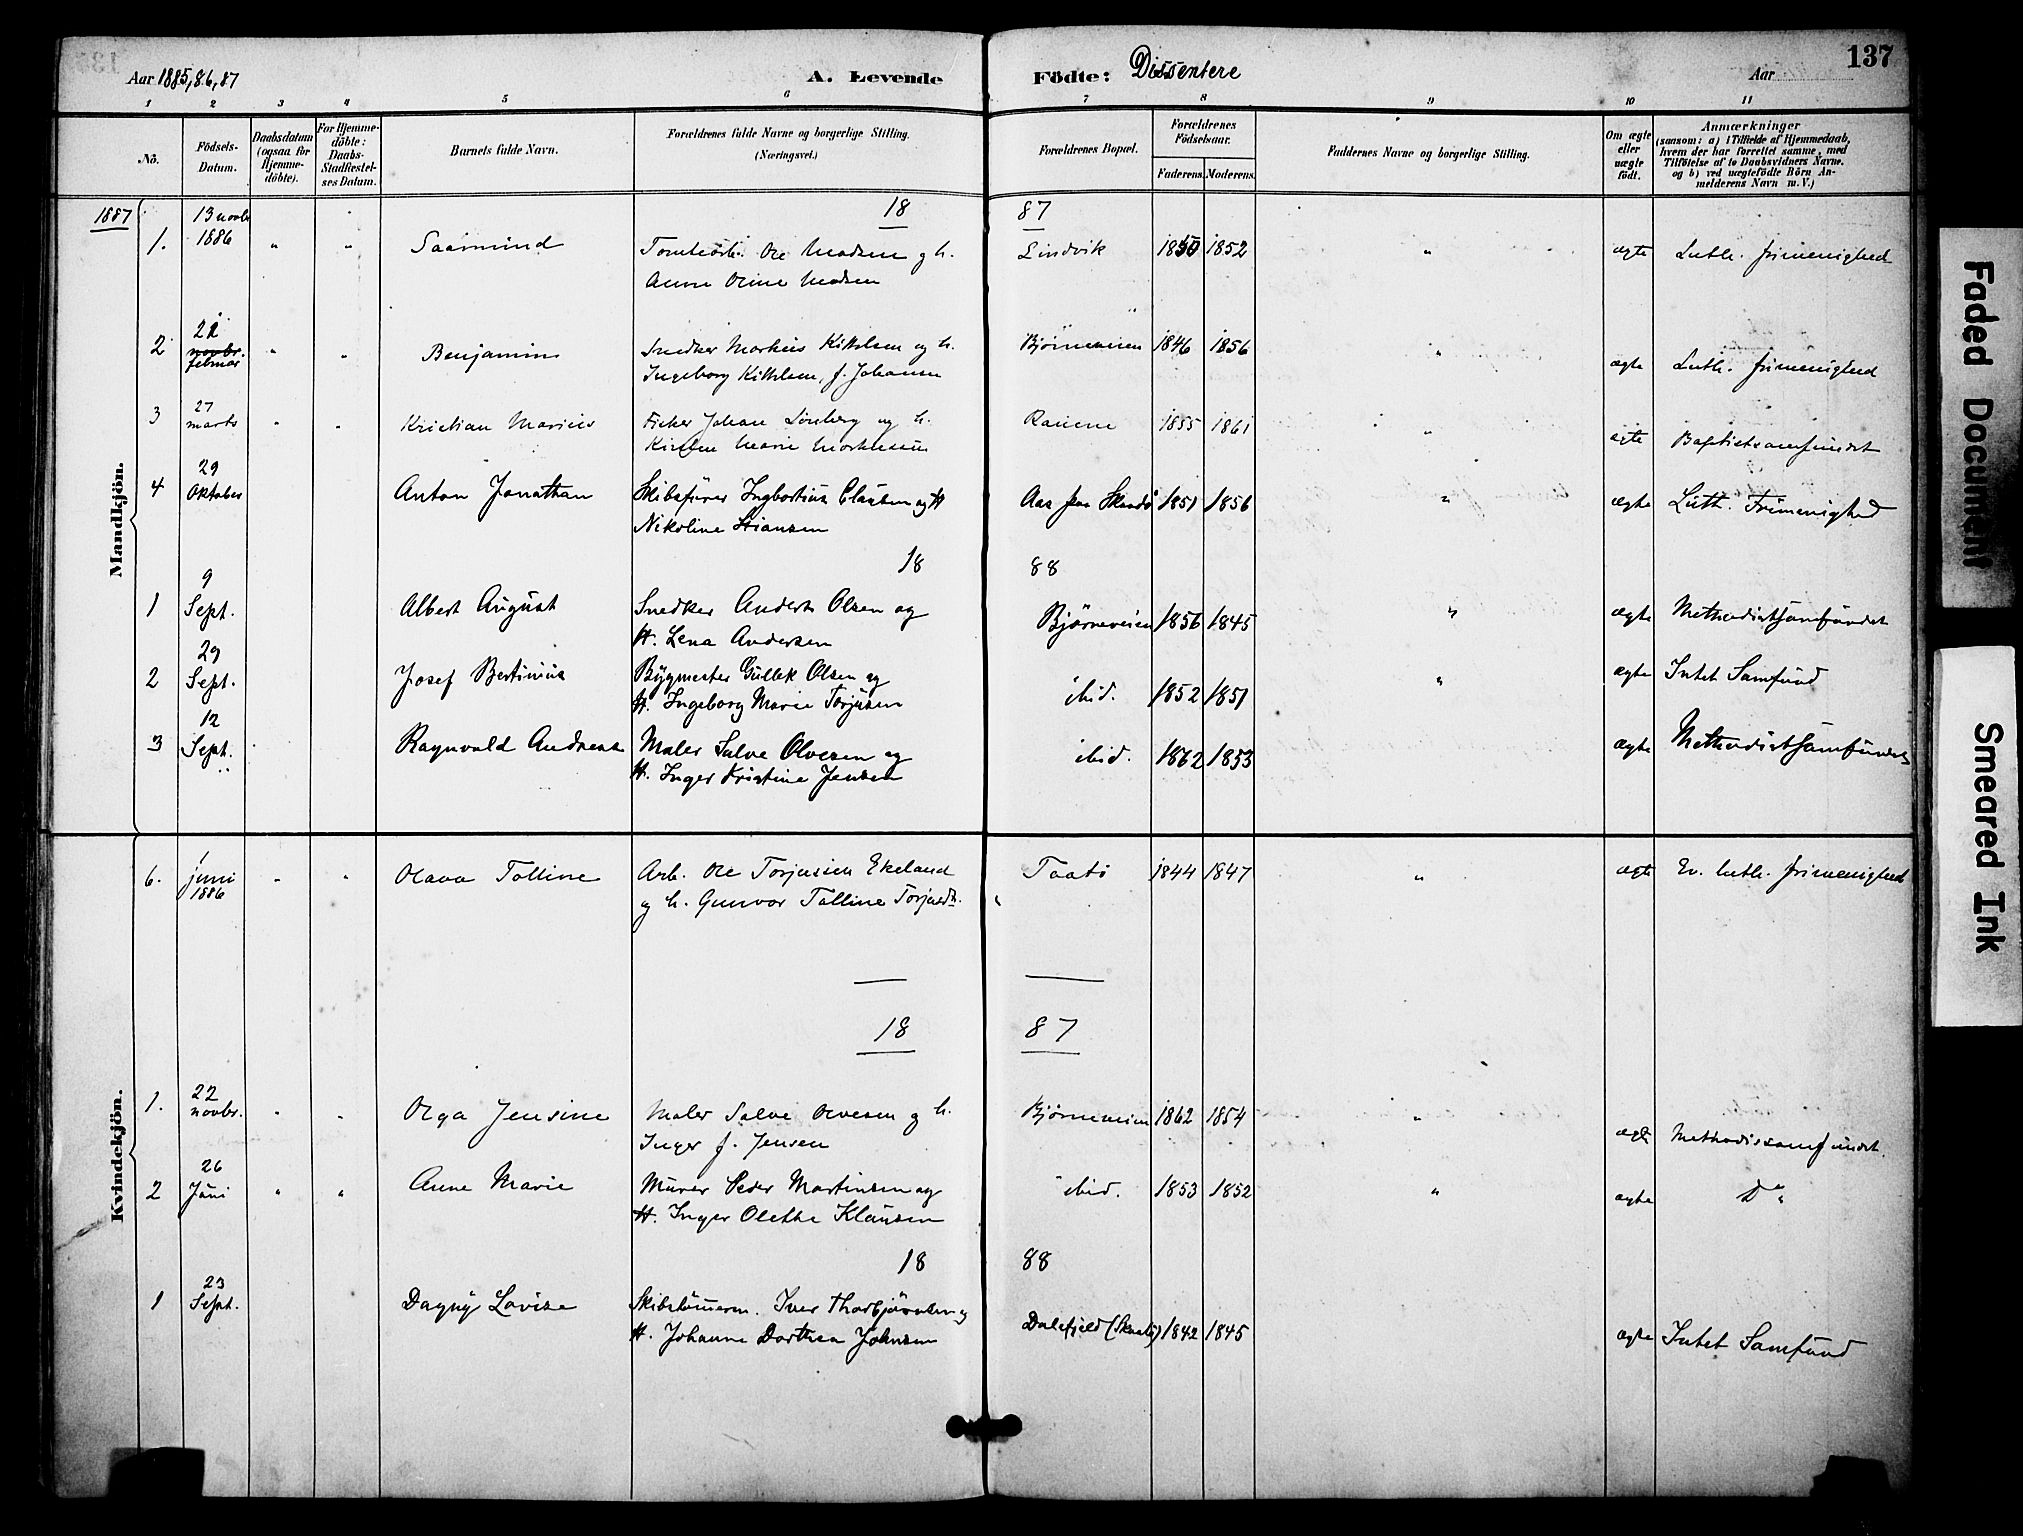 137
Aar 1885, 86, 87
A. Levende
Födte:
Dissentere
Aar
1 2 3 4 5 6 7 8 9 10 11
No.
Födsels-
Datum.
Daabsdatum
(ogsaa for
Hjemme-
döbte).
For Hjemme-
döbte:
Daabs-
Stadfæstel-
ses Datum.
Barnets fulde Navn.
Forældrenes fulde Navne og borgerlige Stilling.
(Næringsvei.)
Forældrenes Bopæl.
Forældrenes
Födselsaar.
Faderens.
Moderens.
Faddernes Navne og borgerlige Stilling.
Om ægte
eller
uægte
födt.
Anmærkninger
(saasom: a) i Tilfælde af Hjemmedaab,
hvem der har forrettet samme, med
Tilföielse af to Daabsvidners Navne.
og b) ved uægtefödte Börn An-
melderens Navn m. V.)
Mandkjön.
1887
18 87
1. 13 novbr 1886 " " Saamund
Ole Madsen og h.
Anne Oline Madsen
Lindvik 1850 1852 " ægte Luth. frimenighed
2 22 novbr. februar " " Benjamin
Snedker Markus Kittelsen og h.
Ingeborg Kittelsen, f. Johansen
Bjørneveien 1846 1856 " ægte Luth. frimenighed
3 27 marts " " Kristian Marius
Fisker Johan Lönberg og h.
Kirsten Marie Mortensen
1855 1861 " ægte Baptistsamfundet
4 29 Oktober Anton Jonathan
Skibsfører Ingbortius Clausen og H
Nikoline Stiansen
Aas paa Skaadö 1851 1856 " ægte Luth. Frimenighed
18 88
1 9 Sept. Albert August
Snedker Anders Olsen og
H. Lena Andersen
Bjørneveien 1856 1845 " ægte Methodistsamfundet
2 29 Sept. Josef Bertinius
Bygmester Gullek Olsen og
H. Ingeborg Marie Torjusen
ibid. 1852 1851 " ægte Intet Samfund
3 12 Sept. Ragnvald Andreas
Maler Salve Olvesen og
H. Inger Kristine Jensen
ibid. 1862 1853 ægte Methodistsamfundet
Kvindekjön.
6. 1 juni 1886 " " Olava Talline
Arb. Ole Torjusen Ekeland
og h. Gunvor Talline Torjusdtr.
Taatö 1844 1847 " ægte Ev. luth. frimenighed
18 87
1. 22 novbr. " " Olga Jensine
Maler Salve Olvesen og h.
Inger f. Jensen
Bjørneveien 1862 1854 " ægte Methodissamfundet.
2 26 Juni " " Anne Marie
Murer Peder Martinsen og
H. Inger Olethe Klausen
ibid. 1853 1852 " ægte Do
18 88
1 23 Sept. Dagny Lovise
Skibstömmerm. Iver Thorbjörnsen og
H. Johanne Dorthea Johnsen
Dalsfjeld (Skaatö) 1842 1845 ægte Intet Samfund
Faded Document
Smeared Ink